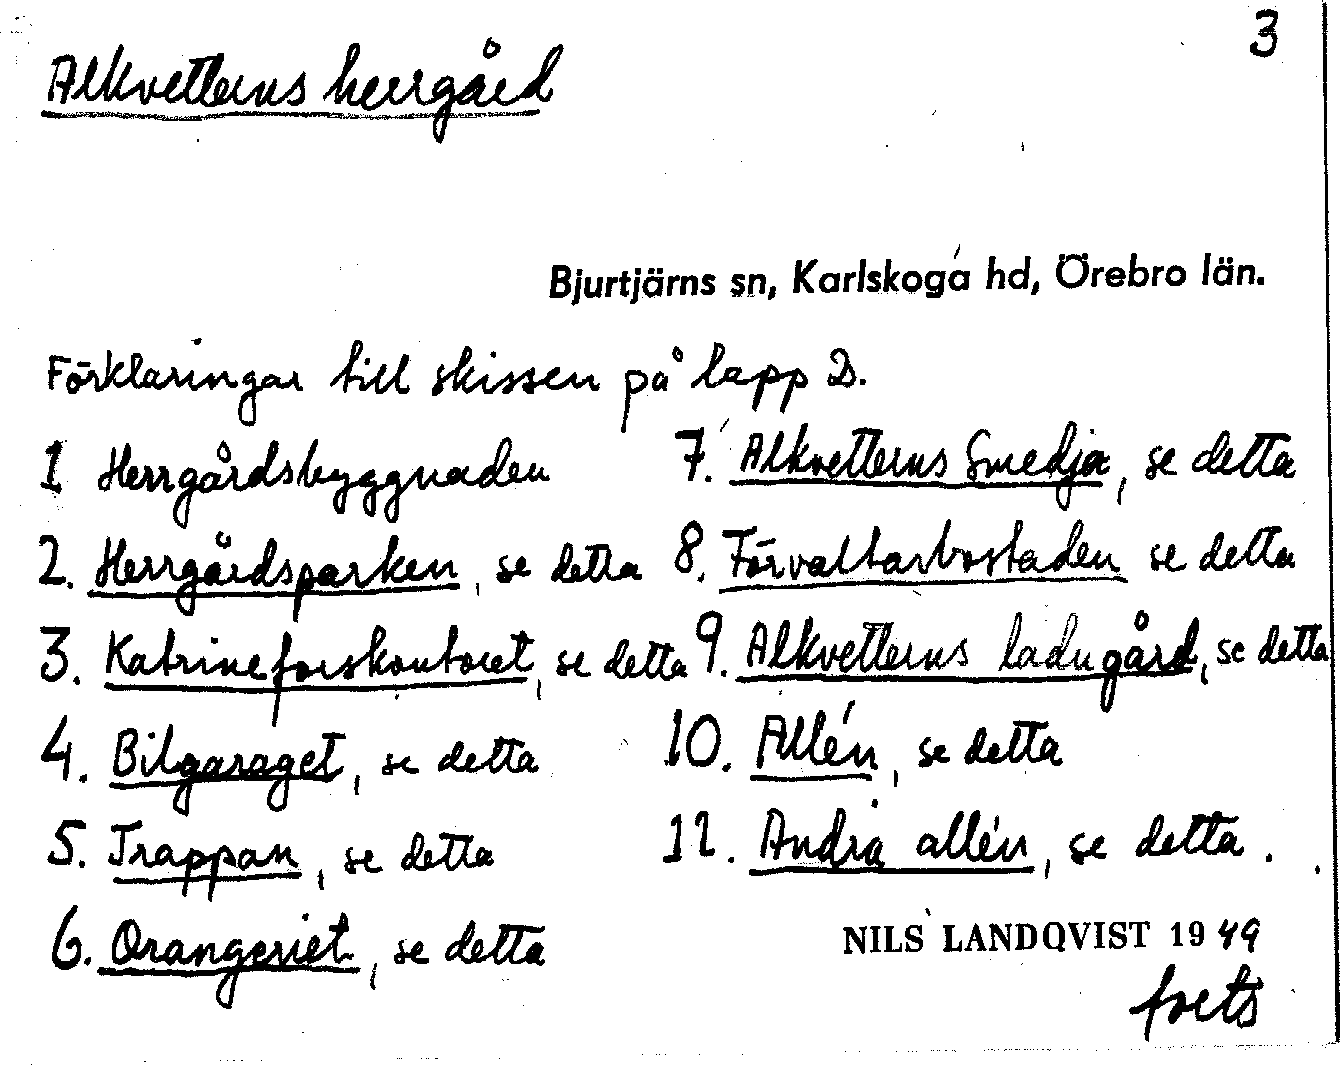 3
Alkvetterns herrgård
Bjurtjärns sn, Karlskoga hd, Örebro län.
Förklaringar till skissen på lapp 2.
1 Herrgårdsbyggnaden
2. Herrgårdsparken, se detta
3. Katrineforskontoret, se detta
4. Bilgaraget, se detta
5. Trappan, se detta
6. Orangeriet, se detta
7. Alkvetterns Smedja, se detta
8. Förvaltarbostaden se detta
9. Alkvetterns ladugård, se detta
10. Allén, se detta
11. Andra allén, se detta.
NILS LANDQVIST 1949
forts